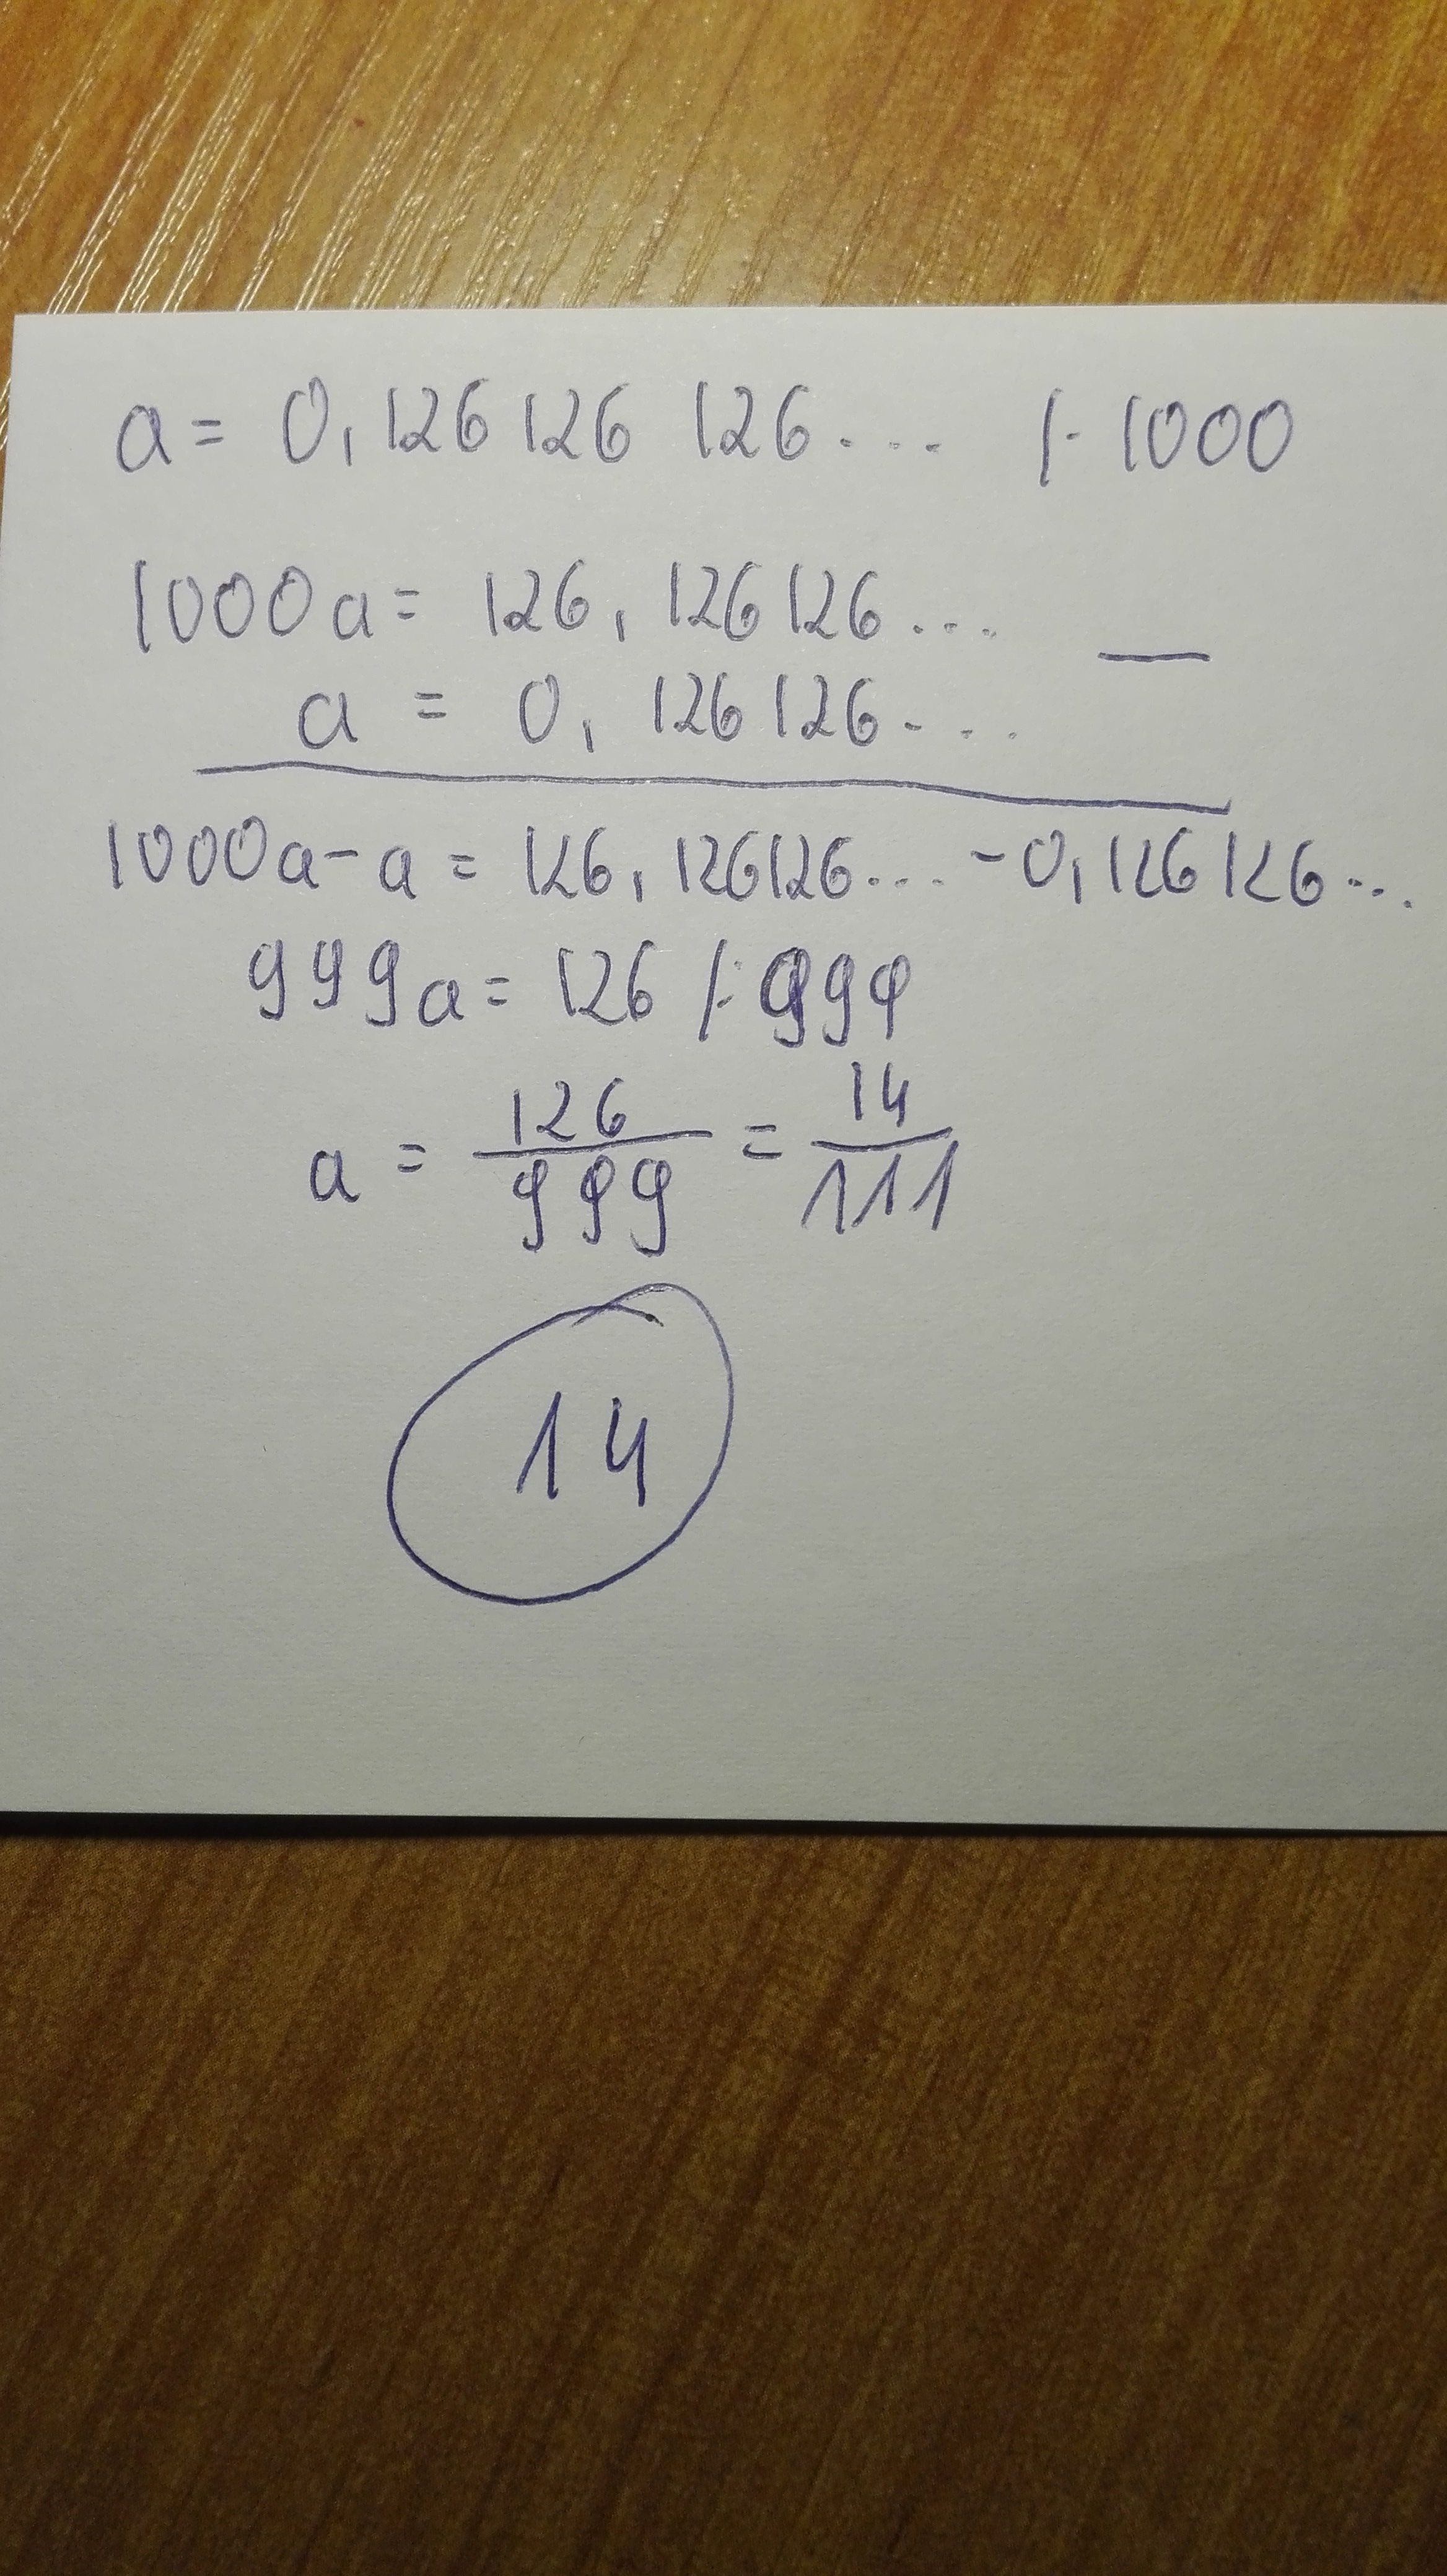 a = 0,126 126 126... /· 1000
1000a = 126,126126... —
a = 0,126126...
1000a-a = 126,126126... -0,126126...
999a = 126 /: 999
a = 126/999 = 14/111
14